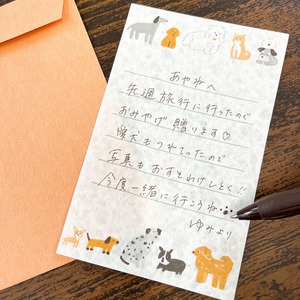 あやねへ
先週旅行に行ったので
おみやげ贈ります
愛犬もつれてったので
写真もおすそわけしとく!!
今度一緒に行こうね
ゆみより